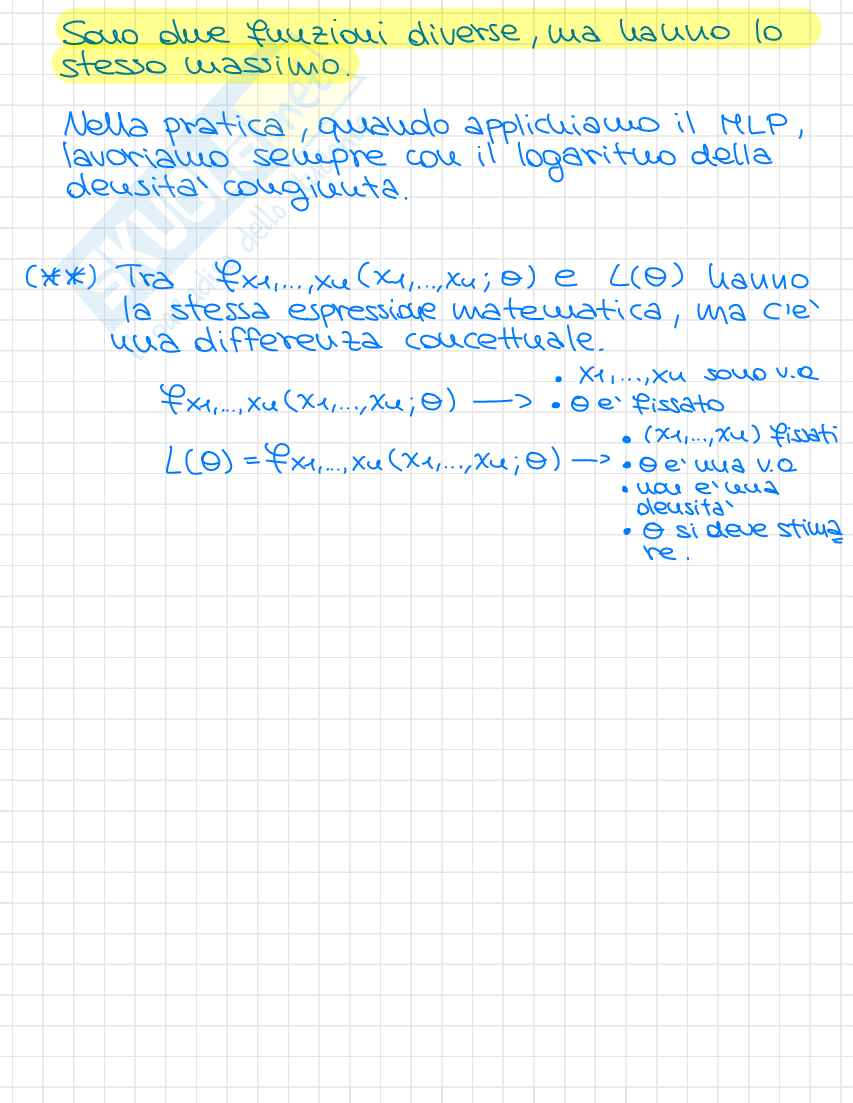 Sono due funzioni diverse, ma hanno lo
stesso massimo.
Nella pratica, quando applichiamo il MLP,
lavoriamo sempre con il logaritmo della
densita' congiunta.
(**) Tra fx1,...,xn(x1,...,xn; θ) e L(θ) hanno
la stessa espressione matematica, ma c'e'
una differenza concettuale.
fx1,...,xn(x1,...,xn; θ) → • X1,...,xn sono v.a
• θ e' fissato
L(θ) = fx1,...,xn(x1,...,xn; θ) → • (x1,...,xn) fissati
• θ e' una v.a
• non e' una
densita'
• θ si deve stima
re.